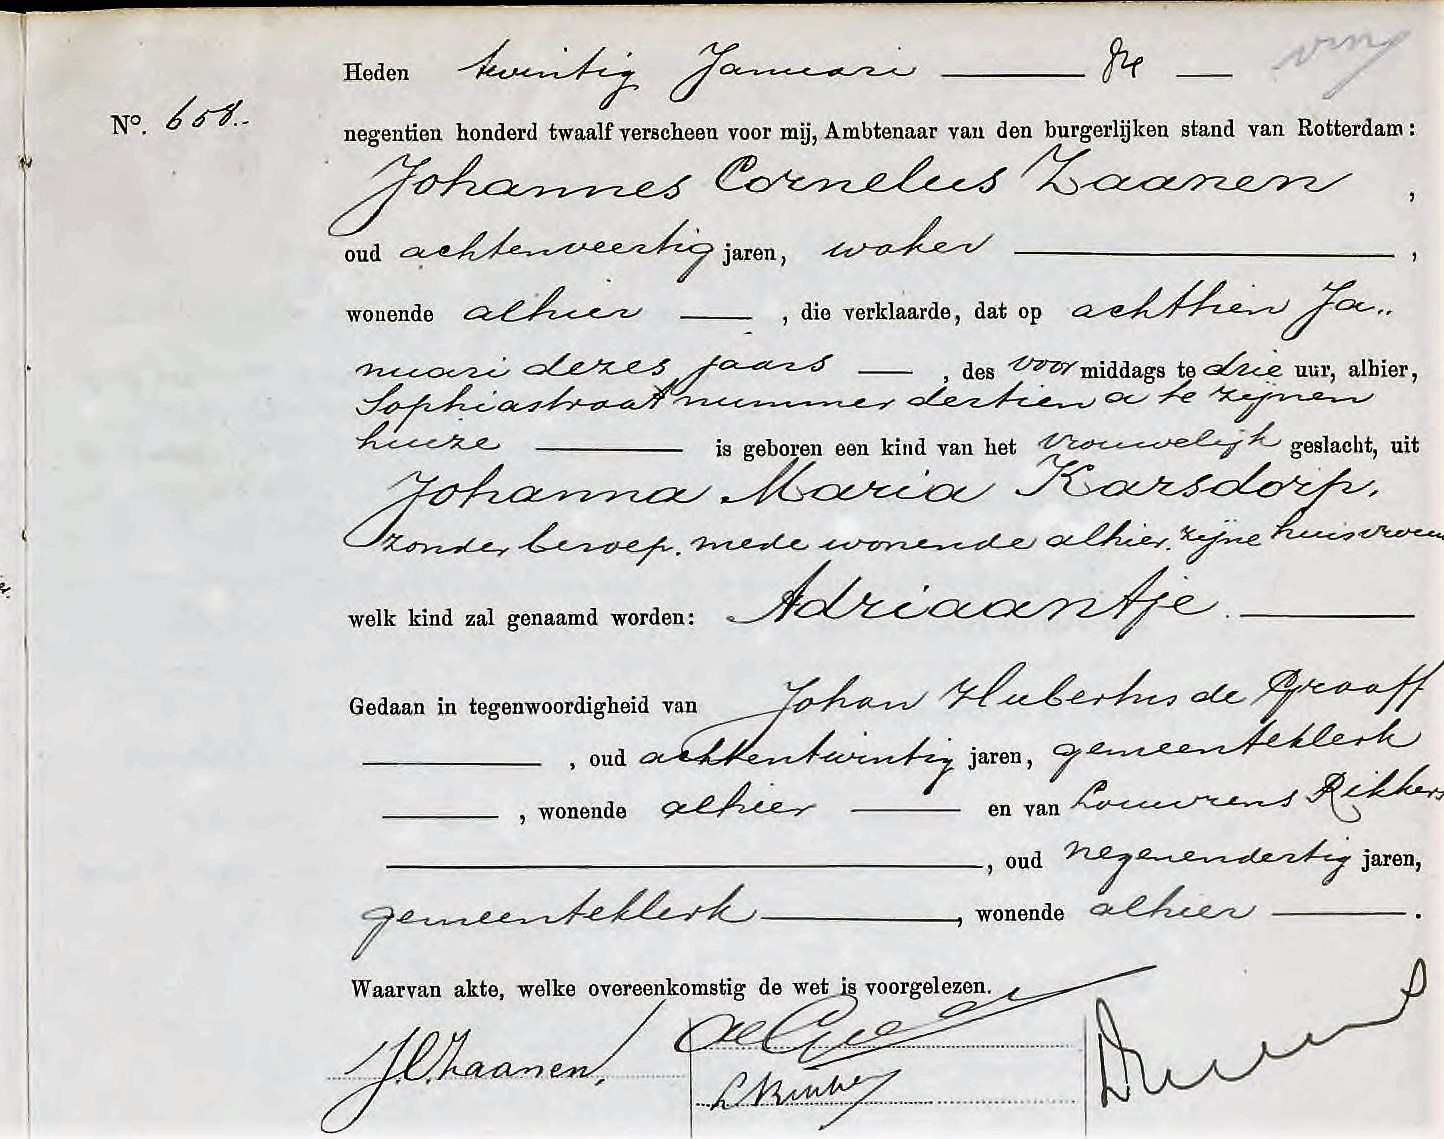 Heden twintig Januari
No. 658.
negentien honderd twaalf verscheen voor mij, Ambtenaar van den burgerlijken stand van Rotterdam:
Johannes Cornelus Zaanen,
oud achtenveertig jaren, waker,
wonende alhier, die verklaarde, dat op achttien Ja..
nuari dezes jaars, des voormiddags te drie uur, alhier,
Sophiastraat nummer dertien a te zijnen
huize is geboren een kind van het vrouwelijk geslacht, uit
Johanna Maria Karsdorp,
zonder beroep, mede wonende alhier, zijne huisvrouw
welk kind zal genaamd worden: Adriaantje.
Gedaan in tegenwoordigheid van Johan Hubertus de Graaff
, oud achtentwintig jaren, gemeenteklerk
, wonende alhier en van Louwrens Rikkers
, oud negenendertig jaren,
gemeenteklerk, wonende alhier.
Waarvan akte, welke overeenkomstig de wet is voorgelezen.
J.C. Zaanen,